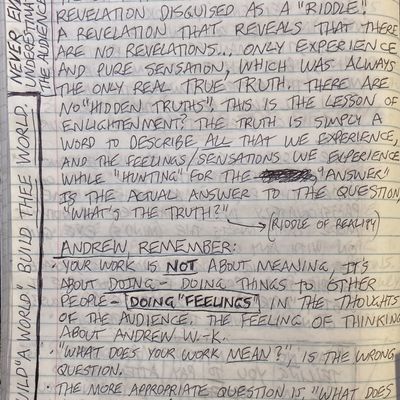 REVELATION DISGUISED AS A "RIDDLE".
A REVELATION THAT REVEALS THAT THERE
ARE NO REVELATIONS... ONLY EXPERIENCE
AND PURE SENSATION, WHICH WAS ALWAYS
THE ONLY REAL TRUE TRUTH. THERE ARE
NO "HIDDEN TRUTHS". THIS IS THE LESSON OF
ENLIGHTENMENT? THE TRUTH IS SIMPLY A
WORD TO DESCRIBE ALL THAT WE EXPERIENCE,
AND THE FEELINGS/SENSATIONS WE EXPERIENCE
WHILE "HUNTING" FOR THE "ANSWER"
IS THE ACTUAL ANSWER TO THE QUESTION,
"WHAT'S THE TRUTH?"
(RIDDLE OF REALITY)
ANDREW, REMEMBER:
• YOUR WORK IS NOT ABOUT MEANING, IT'S
ABOUT DOING - DOING THINGS TO OTHER
PEOPLE - DOING "FEELINGS" IN THE THOUGHTS
OF THE AUDIENCE. THE FEELING OF THINKING
ABOUT ANDREW W.-K.
• "WHAT DOES YOUR WORK MEAN?" IS THE WRONG
QUESTION.
• THE MORE APPROPRIATE QUESTION IS, "WHAT DOES
NEVER
THE AUDIENCE
BUILD "A WORLD". BUILD THEE WORLD.